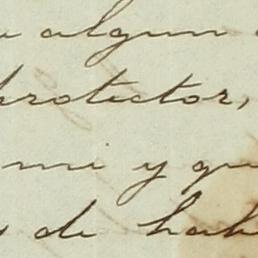 algun
protector,
mi y qu
de hab